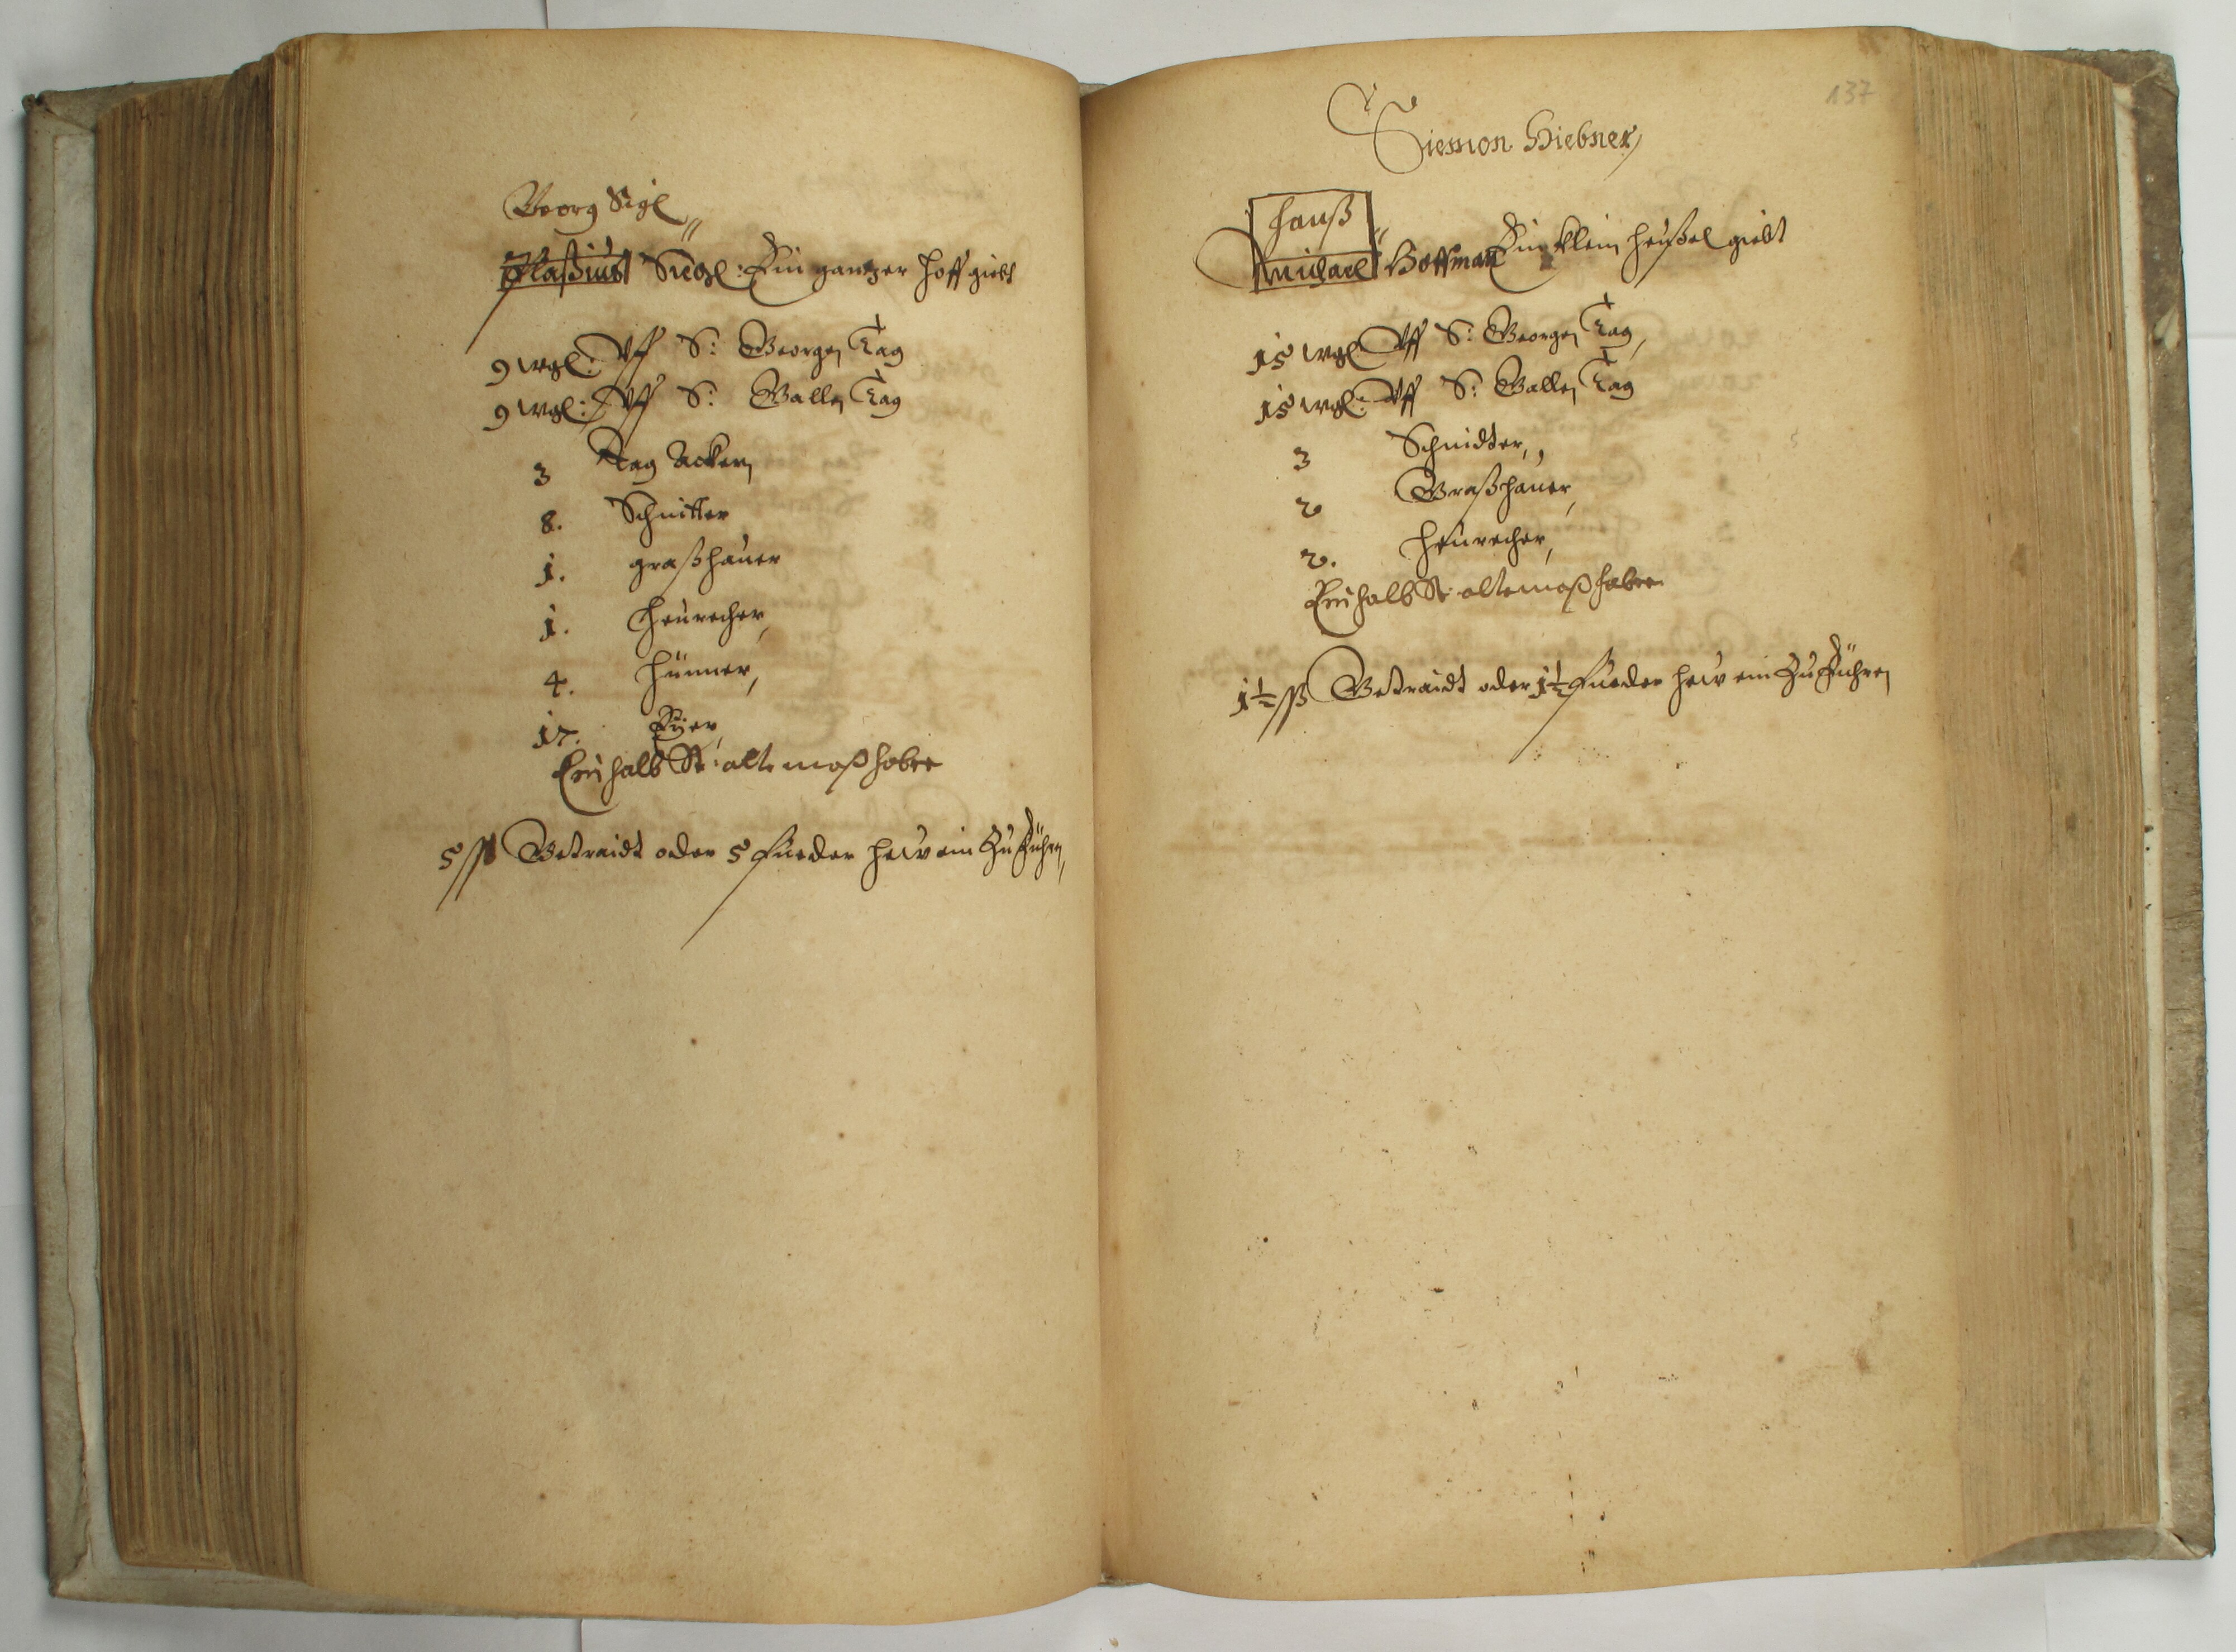 Georg Sigl
Blasius Siegl: Ein gantzer Hoff giebt
9 wgl: Uff S: Georgen Tag
9 wgl: Uff S: Gallen Tag
3 Tag Ackern
8. Schnitter
1. graßhauer
1. Heurecher,
4. Hünner,
17. Eyer,
Ein halb St: alte maß haber
5 ß Getraidt oder 5 Fueder Hew ein Zu Führen,
137
Siemon Hiebner,
Hanß
Michael Hoffman Ein klein Heußel giebt
15 wgl: Uff S: Georgen Tag,
15 wgl: Uff S: Gallen Tag
3 Schnidter,
2 Graßhauer,
2. Heurecher,
Ein halb St: alte maß haber
1½ ß Getraidt oder 1½ Fueder Hew ein Zu Führen